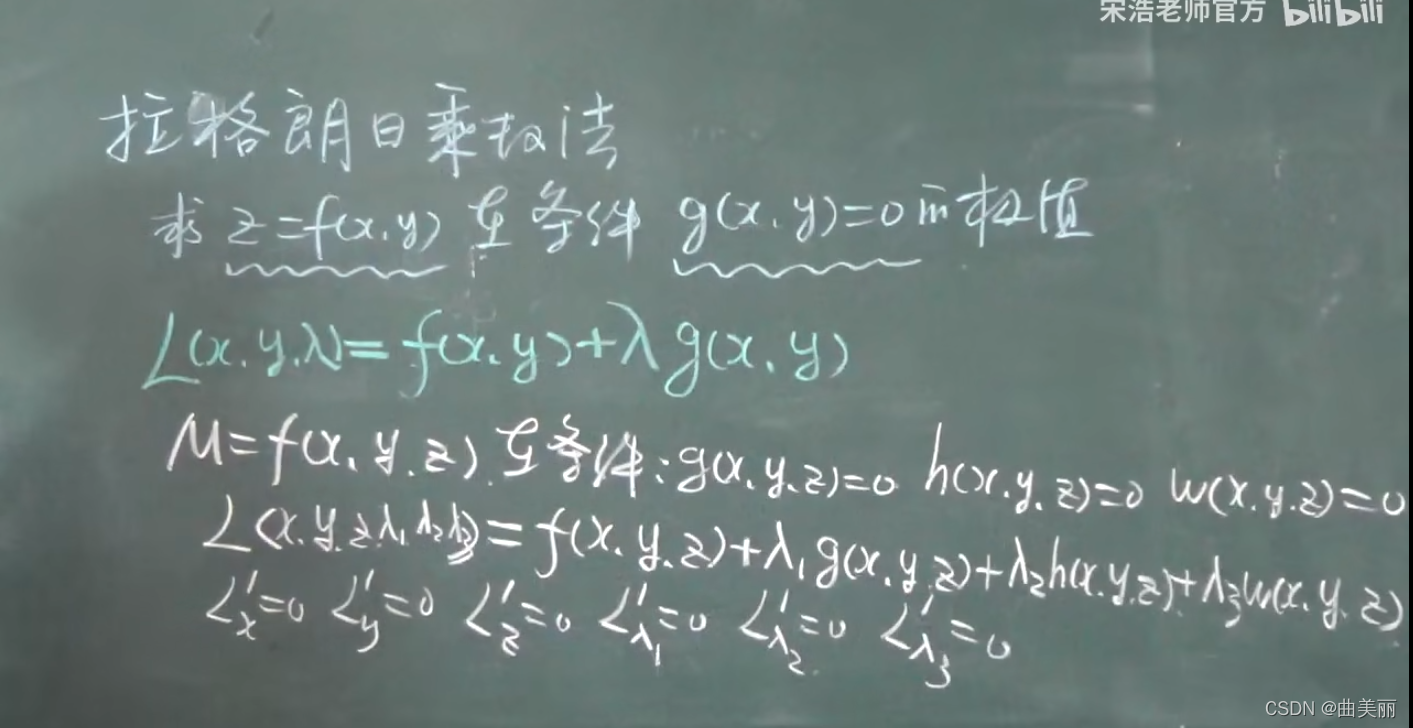 宋浩老师官方 bilibili
拉格朗日乘数法
求 z=f(x,y) 在条件 g(x,y)=0 的极值
L(x,y,λ)=f(x,y)+λg(x,y)
M=f(x,y,z) 在条件:g(x,y,z)=0 h(x,y,z)=0 w(x,y,z)=0
L(x,y,z,λ₁,λ₂,λ₃)=f(x,y,z)+λ₁g(x,y,z)+λ₂h(x,y,z)+λ₃w(x,y,z)
L'ₓ=0 L'y=0 L'z=0 L'λ₁=0 L'λ₂=0 L'λ₃=0
CSDN @曲美丽